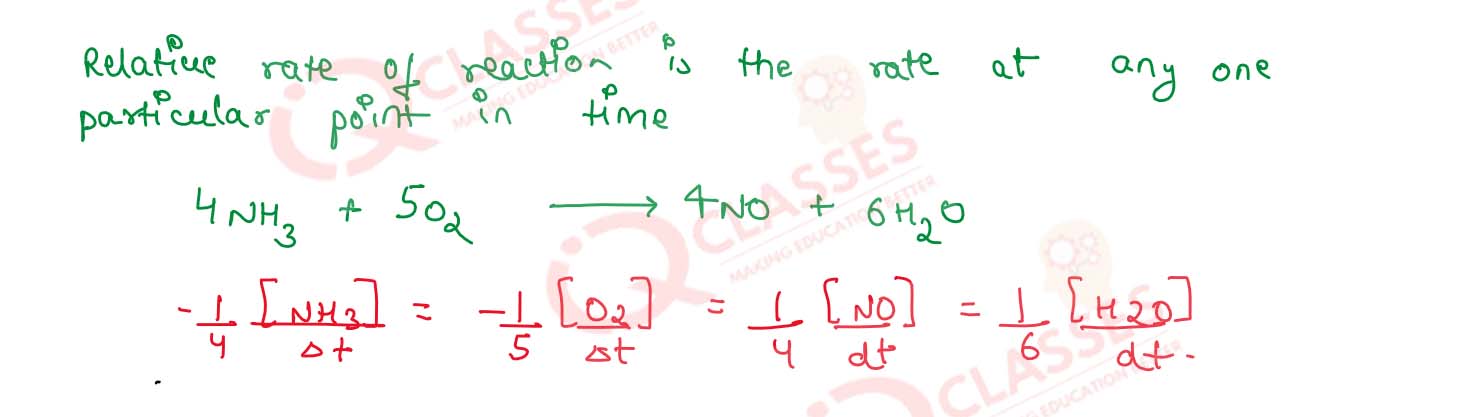 Relative rate of reaction is the rate at any one
particular point in time
4NH₃ + 5O₂ ⟶ 4NO + 6H₂O
-1/4 [NH3]/Δt = -1/5 [O2]/Δt = 1/4 [NO]/dt = 1/6 [H2O]/dt.
CLASSES
MAKING EDUCATION BETTER
CLASSES
MAKING EDUCATION BETTER
CLASSES
EDUCATION BETTER